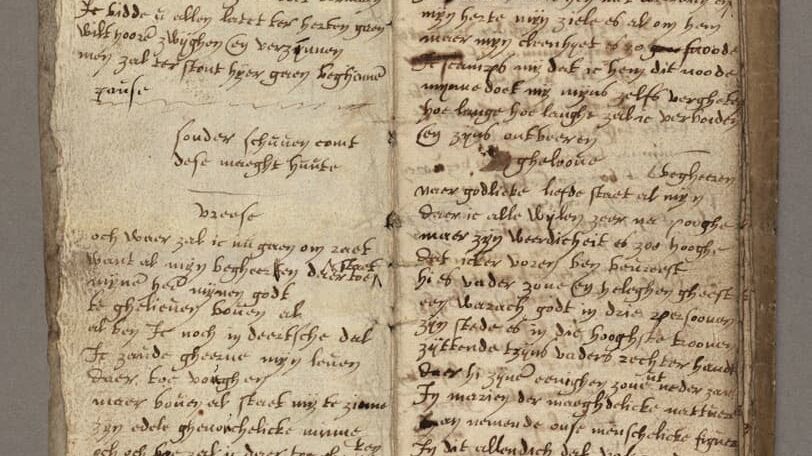 Ic bidde u allen latet ter herten gaen
wilt hooren zwijghen en verzinnen
men zal ter stont hyer gaen beghinnen
pause
sonder schuuen comt
dese maeght huute
vreese
och waer zal ic nu gaen om raet
want al mijn begheerten daer toe staet
mijnen heer mijnen godt
te ghelieuen bouen al
al ben Ic noch in deertsche dal
Ic zaude gheerne mijn leuen
daer toe voughen
maer bouen al staet mij te zinne
zijn edele ghenouchelicke minne
och och hoe zal ic daer toe
mijn herte mijn ziele es al om hem
maer mijn cleenhyet es zo snoode
Ic scamps mij dat ic hem dit noode
minne doet mij mijns zelfs vergheten
hoe langhe hoe langhe zal ic verbeiden
en zijns ontbeeren
ghelooue
begheeren
naer godlicke liefde staet al mijn
daer ic alle wijlen zeer na pooghe
maer zijn weerdicheit es zoe hooghe
dat icker voren ben beureest
hi es vader zone en heleghen gheest
een warach godt in drie persoonen
zijn stede es in die hooghste troonen
zittende tzijns vaders rechter handt
daer hi zijnen eenighen zone uut neder zant
In marien der maeghdelicke natture
aan nemende onse menschelicke figuere
In dit allendich dal